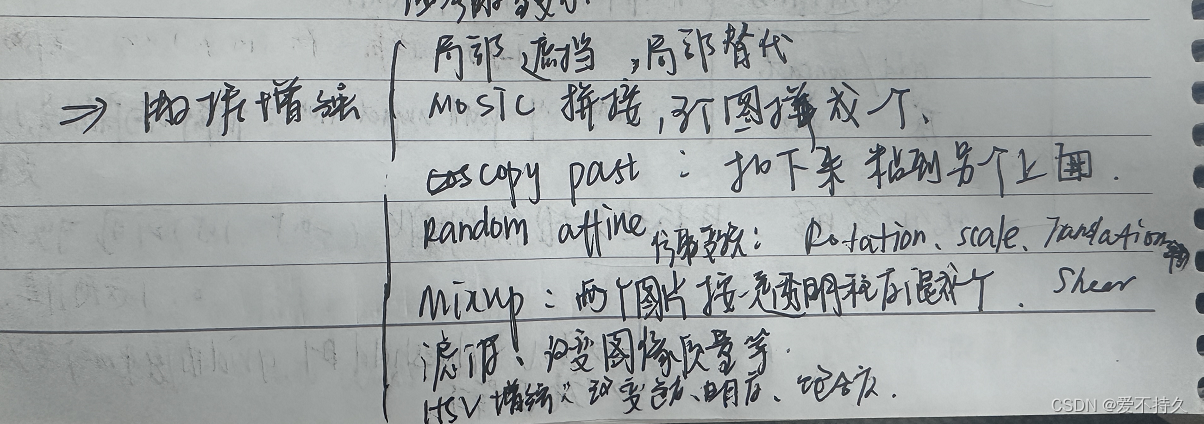 局部遮挡,局部替代
⇒ 数据增强
MOSIC 拼接,多个图拼成一个、
copy past : 扣下来 粘到另个上面.
Random affine 仿射变换: Rotation、scale、Translation
Shear
Mixup : 两个图片 按一定透明程度混成一个.
滤波、改变图像质量等.
HSV 增强: 改变色度、明度、饱合度.
CSDN @爱不持久